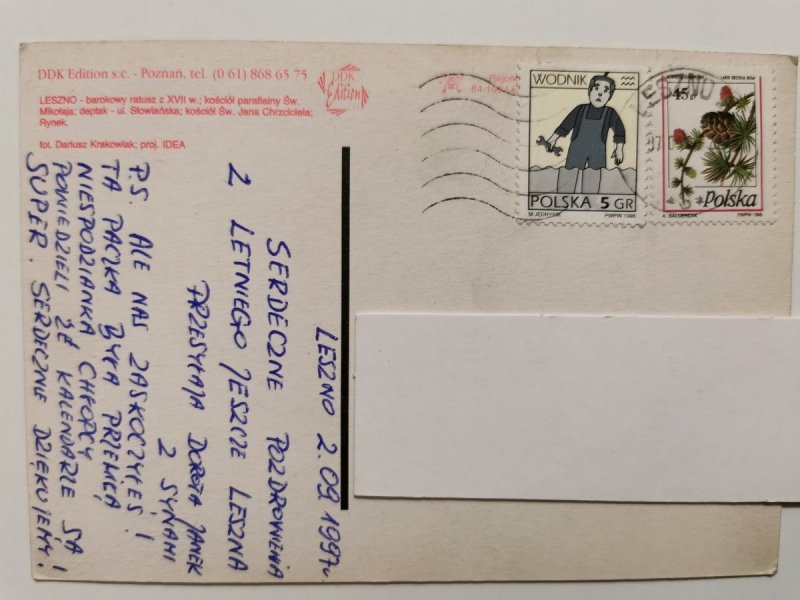 DDK Edition s.c. - Poznań, tel. (0 61) 868 65 75
LESZNO - barokowy ratusz z XVII w.; kościół parafialny Św.
Mikołaja; deptak - ul. Słowiańska; kościół Św. Jana Chrzciciela;
Rynek.
fot. Dariusz Krakowiak; proj. IDEA
DDK
Edition
WODNIK
POLSKA 5 GR
M. JĘDRYSIK PWPW 1996
45
Polska
A. BALCERZAK PWPW 1995
LESZNO
LESZNO 2.09 1997r.
SERDECZNE POZDROWIENIA
Z LETNIEGO JESZCZE LESZNA
PRZESYŁAJĄ DOROTA JANEK
Z SYNAMI
P.S. ALE NAS ZASKOCZYŁEŚ!
TA PACZKA BYŁA PRZEMIŁĄ
NIESPODZIANKĄ CHŁOPCY
POWIEDZIELI ŻE KALENDARZE SĄ
SUPER. SERDECZNIE DZIĘKUJEMY.